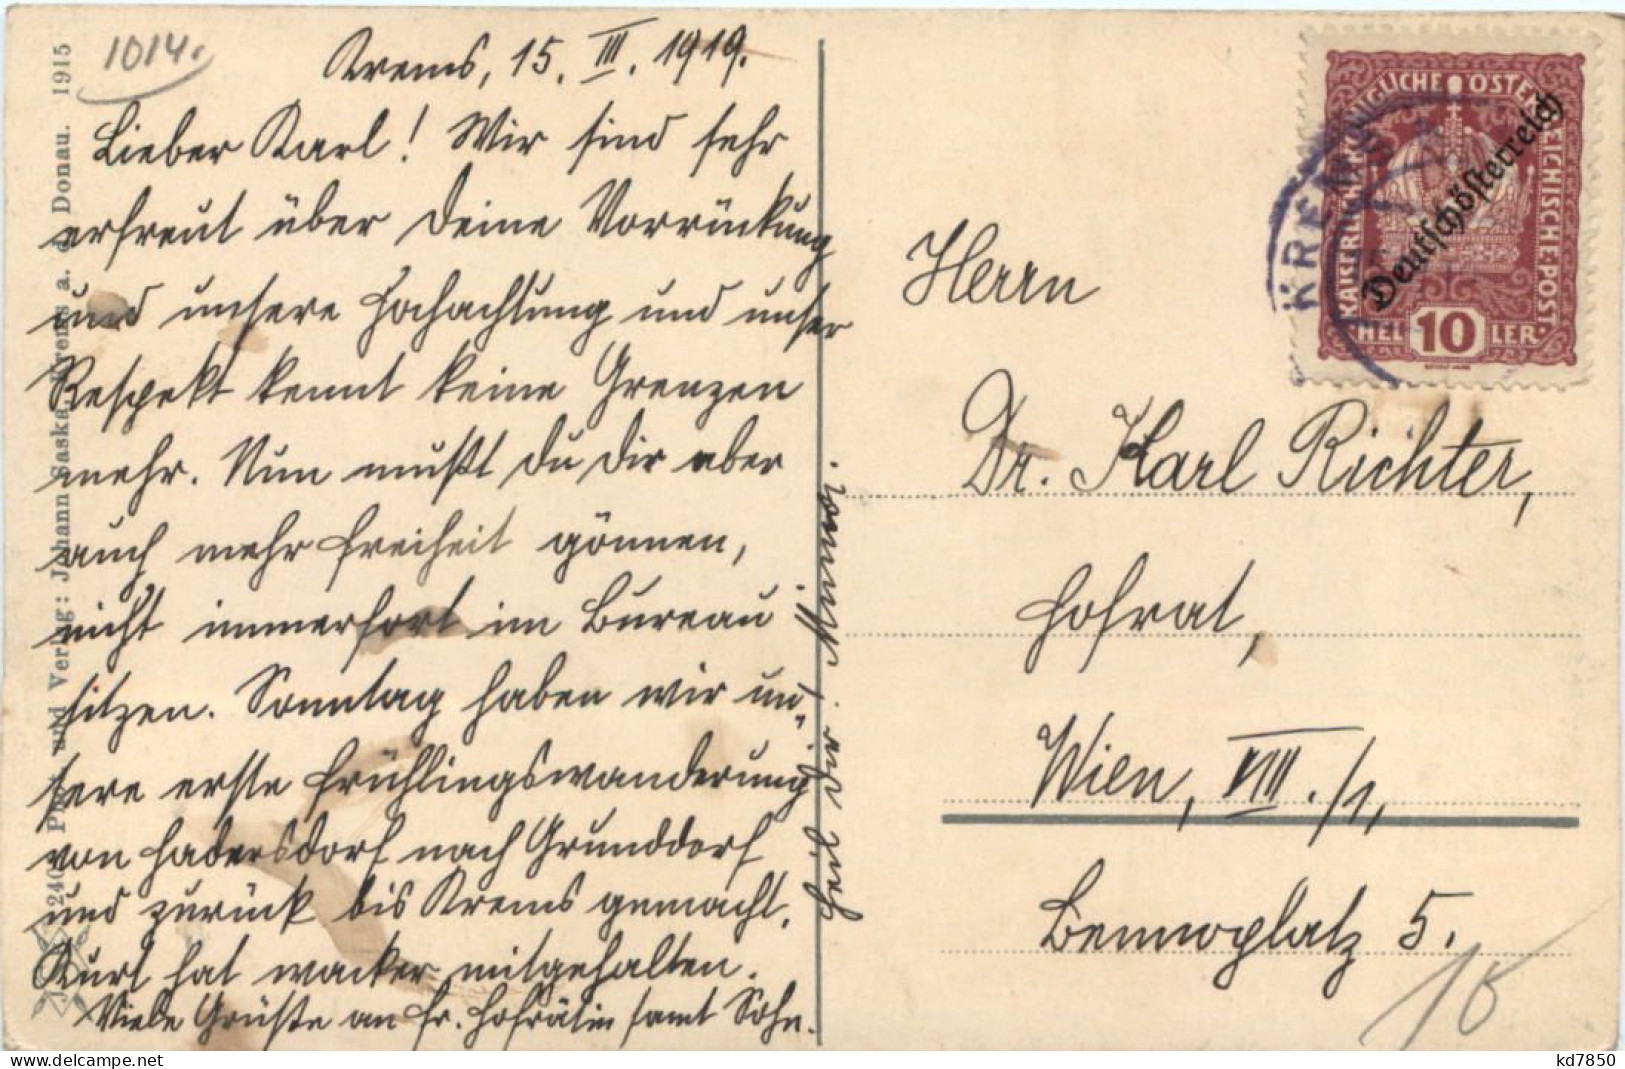 1014.
Krems, 15. III. 1919.
Lieber Karl! Wir sind sehr
erfreut über Deine Vorrückung
und unsere Hochachtung und unser
Respekt kennt keine Grenzen
mehr. Nun mußt Du Dir aber
auch mehr Freiheit gönnen,
nicht immerfort im Bureau
sitzen. Sonntag haben wir un„
sere erste Frühlingswanderung
von Hadersdorf nach Grunddorf
und zurück bis Krems gemacht.
Kurt hat wacker mitgehalten.
Viele Grüße an Fr. Hofrätin samt Sohn.
Herrn
Dr. Karl Richter,
Hofrat,
Wien, VIII./1,
Bennoplatz 5.
16
KAISERLICHE KÖNIGLICHE ÖSTERREICHISCHE POST
Deutschösterreich
HELLER
10
KREMS
240 Phot. und Verlag: Johann Saska, Krems a. d. Donau. 1915
kd7850